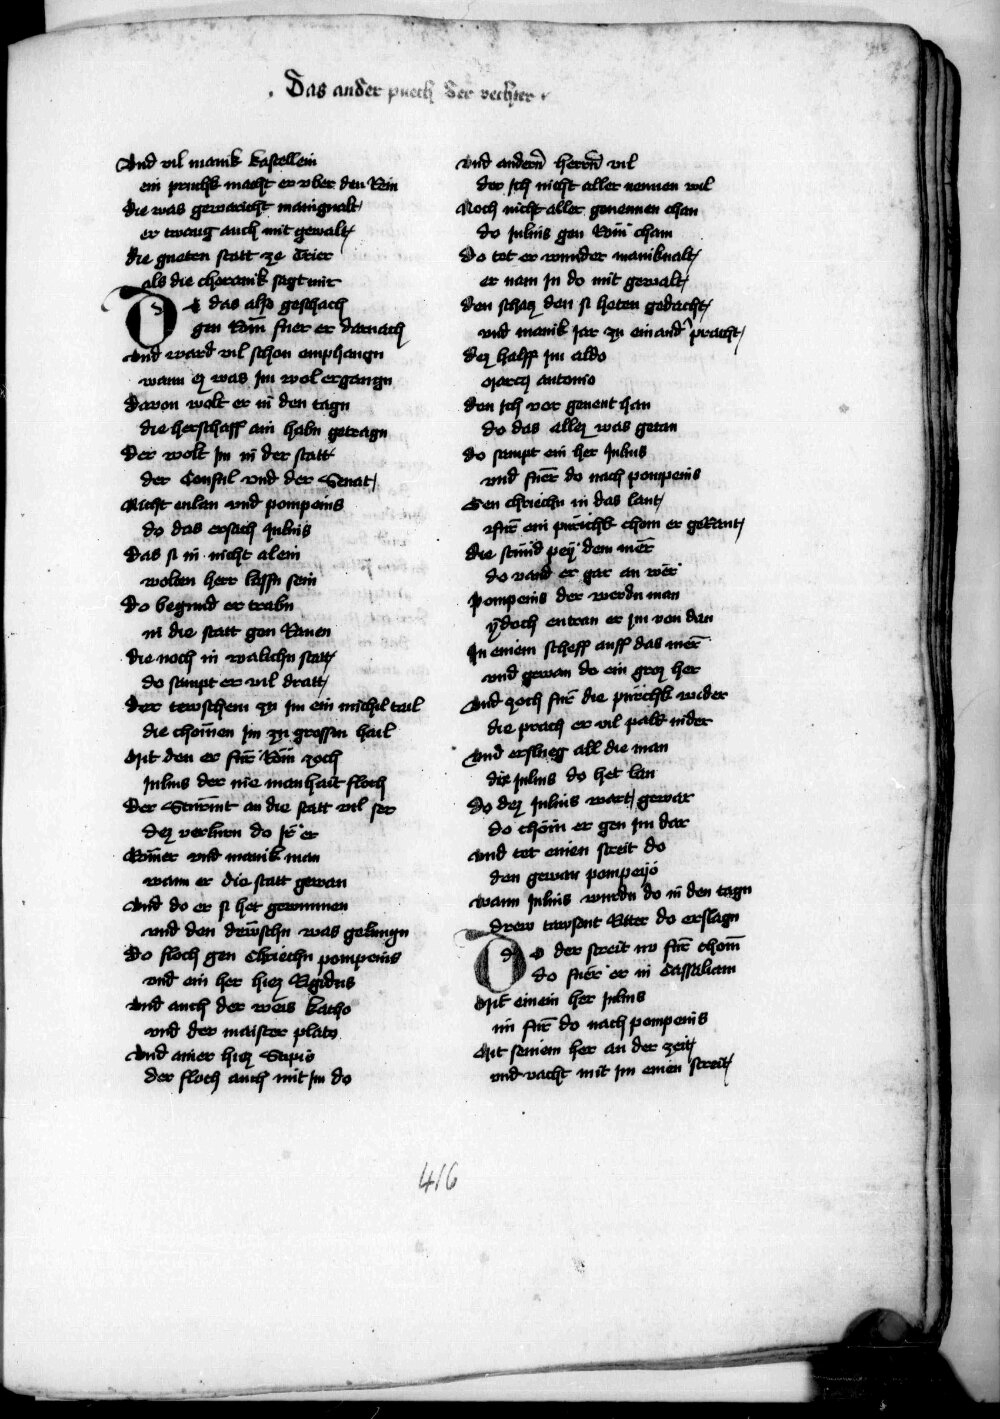 . Das ander puech der rechter .
Vnd vil manik kastellein
ein prukh macht er vber den Rein
die was geworicht manignalt
er twang auch mit gewalt
die gueten statt ze Trier
als die choronik sagt mir
Do das also geschach
gen Röm fuer er darnach
Vnd ward vil schon emphangn
wann ez was Im wol ergangn
Davon wolt er in den tagn
die herschafft ain habn getragn
Der wolt Im in der statt
der Consul vnd der Senat
Nicht enlan vnd pompeius
do das ersach Julius
Das si in nicht alein
wolten herr lassn sein
do begund er trabn
in die statt gen Rauen
die noch in walichn statt
do sampt er vil dratt
der tewschenn zu Im ein michil tail
die chomen Im zu grossem hail
Mit den er für Röm zoch
Julius der nie manhait floch
Der Sturmt an die statt vil ser
dez verlurn do Ir er
Römer vnd manik man
wann er die statt gewan
Vnd do er si het gewunnen
vnd den dewschn was gelungn
do floch gen Chriechn pompeius
vnd ein her hiez Egidius
Vnd auch der weis Katho
vnd der maister plato
Vnd ainer hiez Scipio
der floch auch mit Im do
Vnd andern herrn vil
der Ich nicht aller nennen wil
Noch nicht aller genennen chan
do Julius gen Röm cham
Do tet er wunder manikualt
er nam In do mit gewalt
den schatz den si heten gedacht
vnd manik Jar zu einand pracht
dez halff Im aldo
Marco antonio
den Ich vor genent han
do das allez was getan
do sampt ein her Julius
vnd fuer do nach pompeius
Gen chriechn in das lant
für ein pürichk chom er gerant
die stünd pey dem mer
do vand er gar an wer
Pompeius der werdn man
ydoch entran er Im von dan
In einem scheff auff das mer
vnd gewan do ein groz her
Vnd zoch für die pürichk wider
die prach er vil pald nider
Vnd erslueg all die man
die Julius do het lan
Do dez Julius wart gewar
do chöm er gen Im dar
Vnd tet einen streit do
den gewan pompeyo
wann Julius wurdn do in den tagn
drew tawsent Ritter do erslagn
Do der streit nv für chom
do fuer er in Cassaliam
Mit einem her Julius
im für do nach pompeius
Mit seinem her an der zeit
vnd vacht mit Im einen streit
416